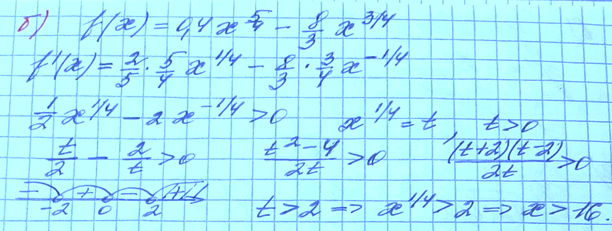 б) f(x) = 0,4 x^{5/4} - 8/3 x^{3/4}
f'(x) = 2/5 · 5/4 x^{1/4} - 8/3 · 3/4 x^{-1/4}
1/2 x^{1/4} - 2 x^{-1/4} > 0 x^{1/4} = t t > 0
t/2 - 2/t > 0 (t^2 - 4)/(2t) > 0 ((t+2)(t-2))/(2t) > 0
- + - +
-2 0 2 t > 2 => x^{1/4} > 2 => x > 16.